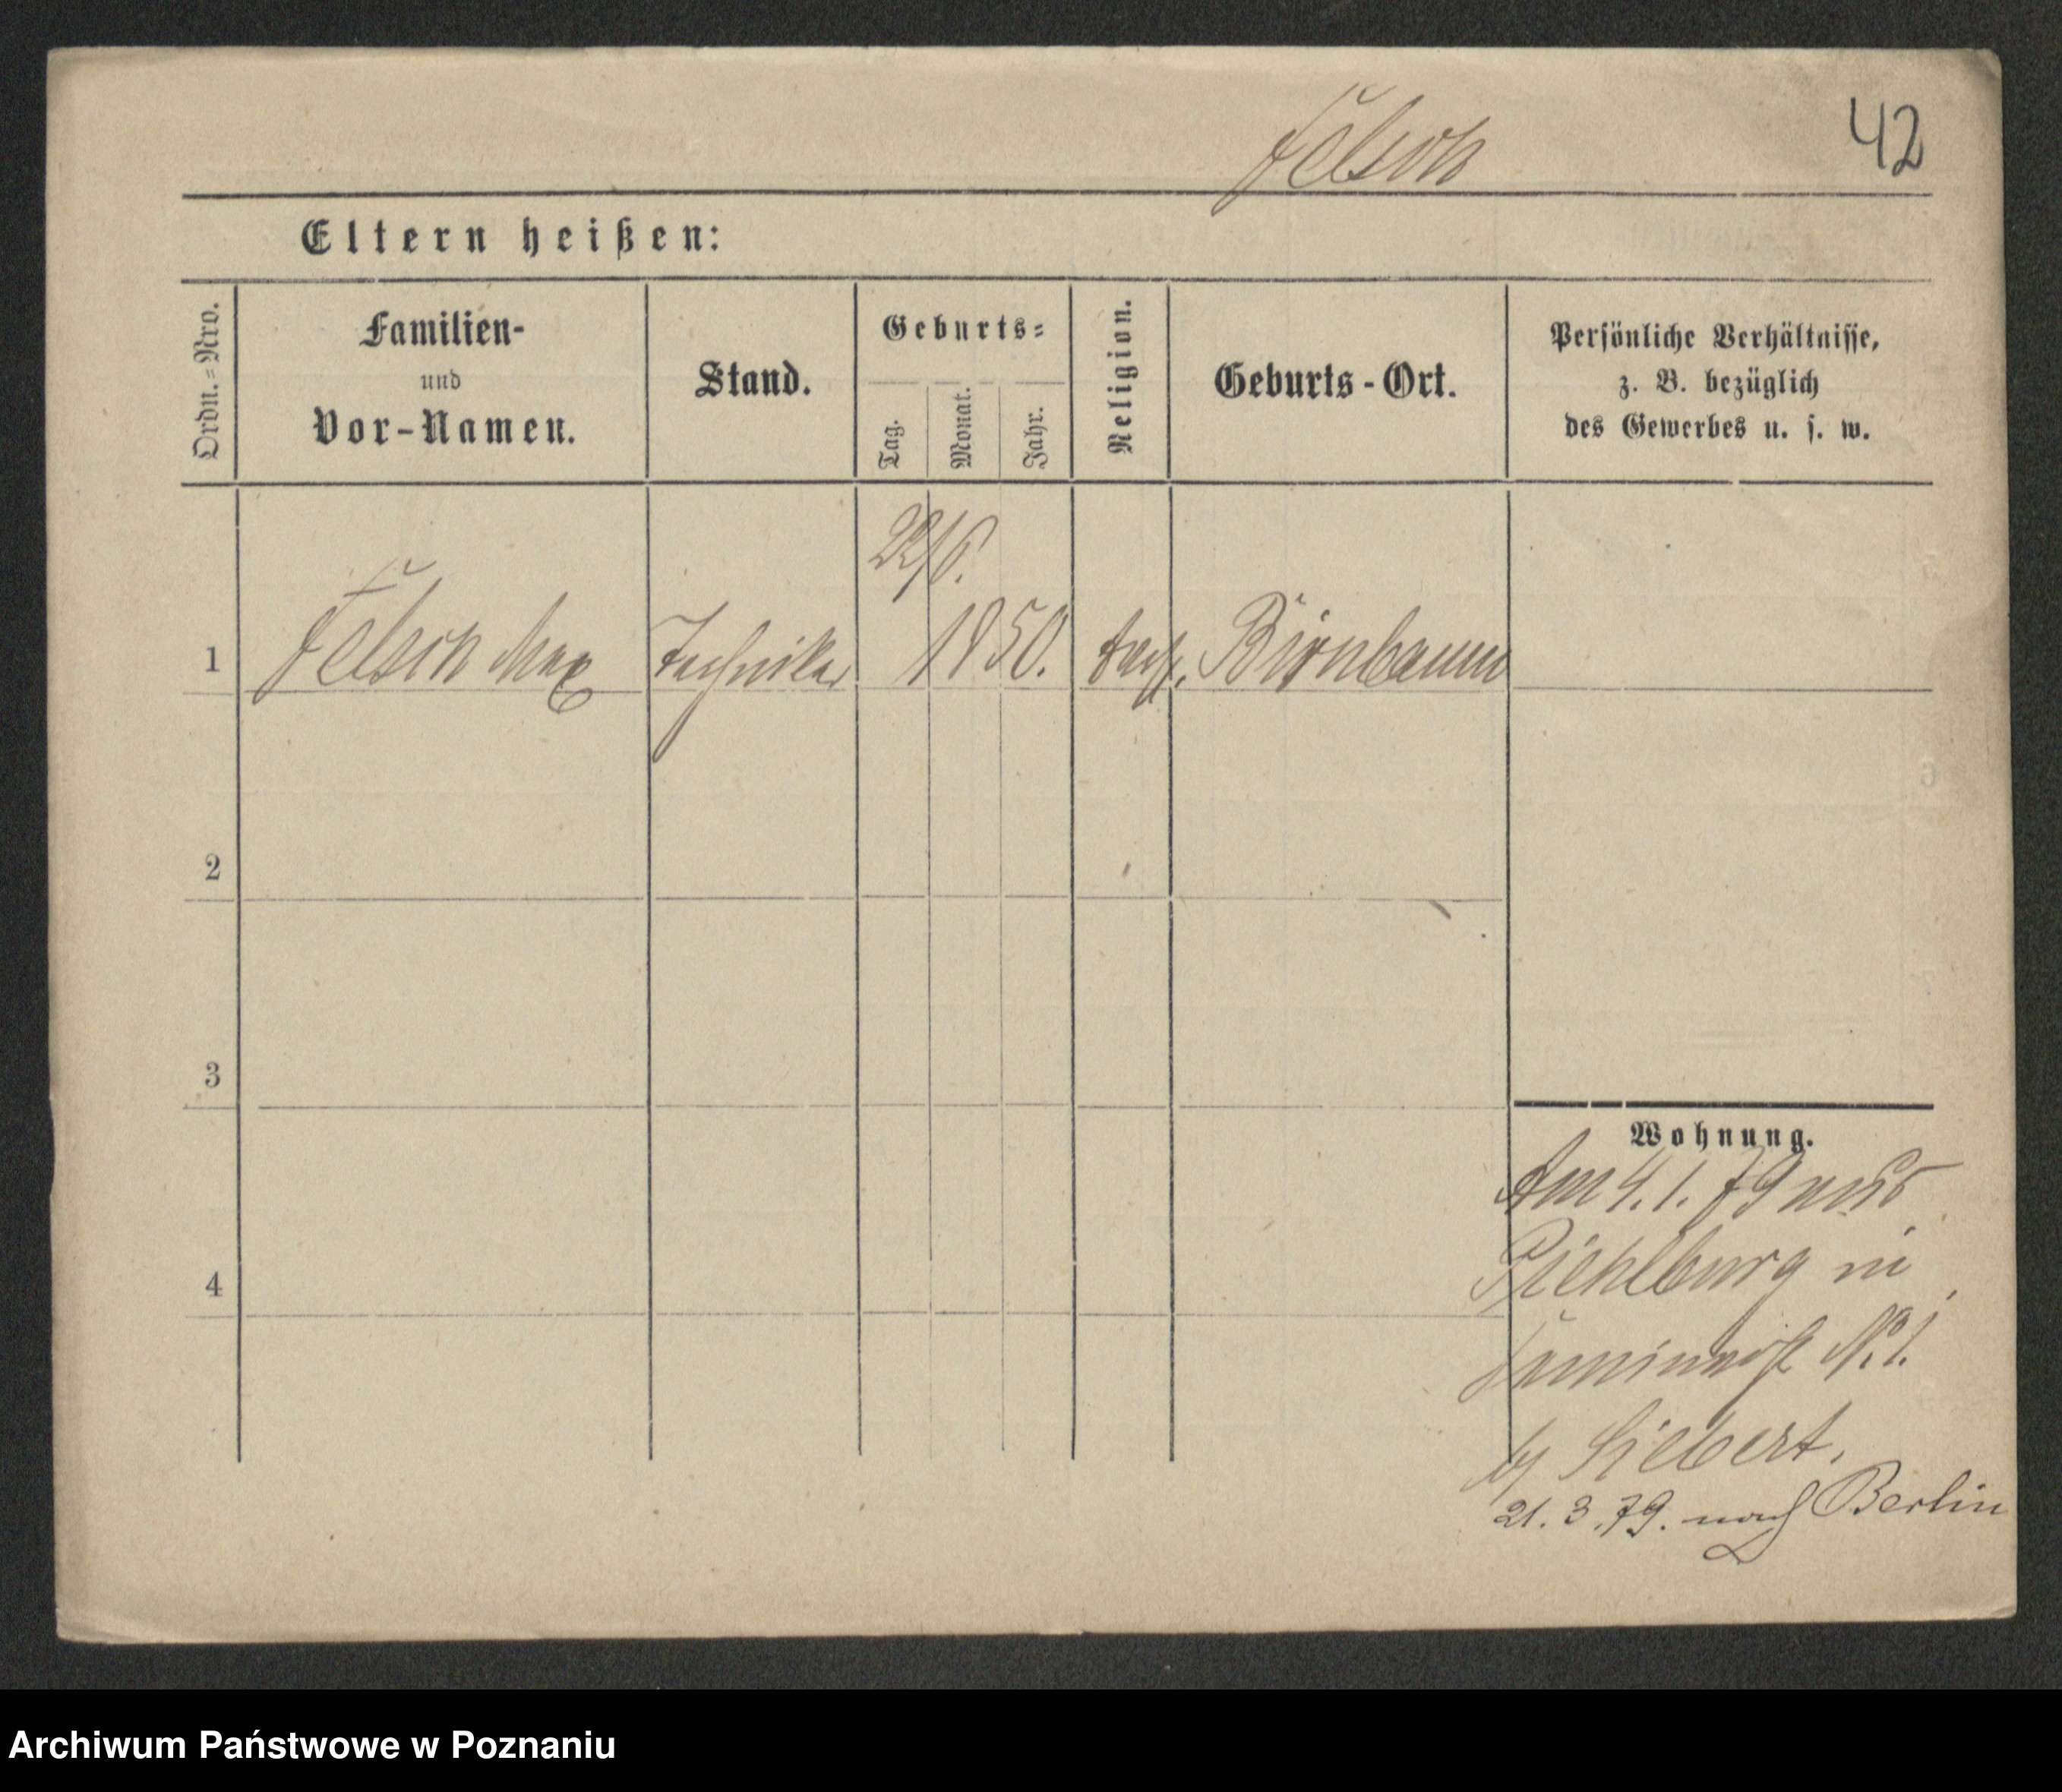 Felsch
42
Eltern heißen:
Ordn.=Nro.
Familien-
und
Vor-Namen.
Stand.
Geburts=
Tag.
Monat.
Jahr.
Religion.
Geburts-Ort.
Persönliche Verhältnisse,
z. B. bezüglich
des Gewerbes u. s. w.
22/6.
1 Felsch Max Techniker 1850. Birnbaum
2
3
4
Wohnung.
Am 4. 1. 79 aus
in
N. 1.
b/ Siebert.
21. 3. 79. nach Berlin
Archiwum Państwowe w Poznaniu